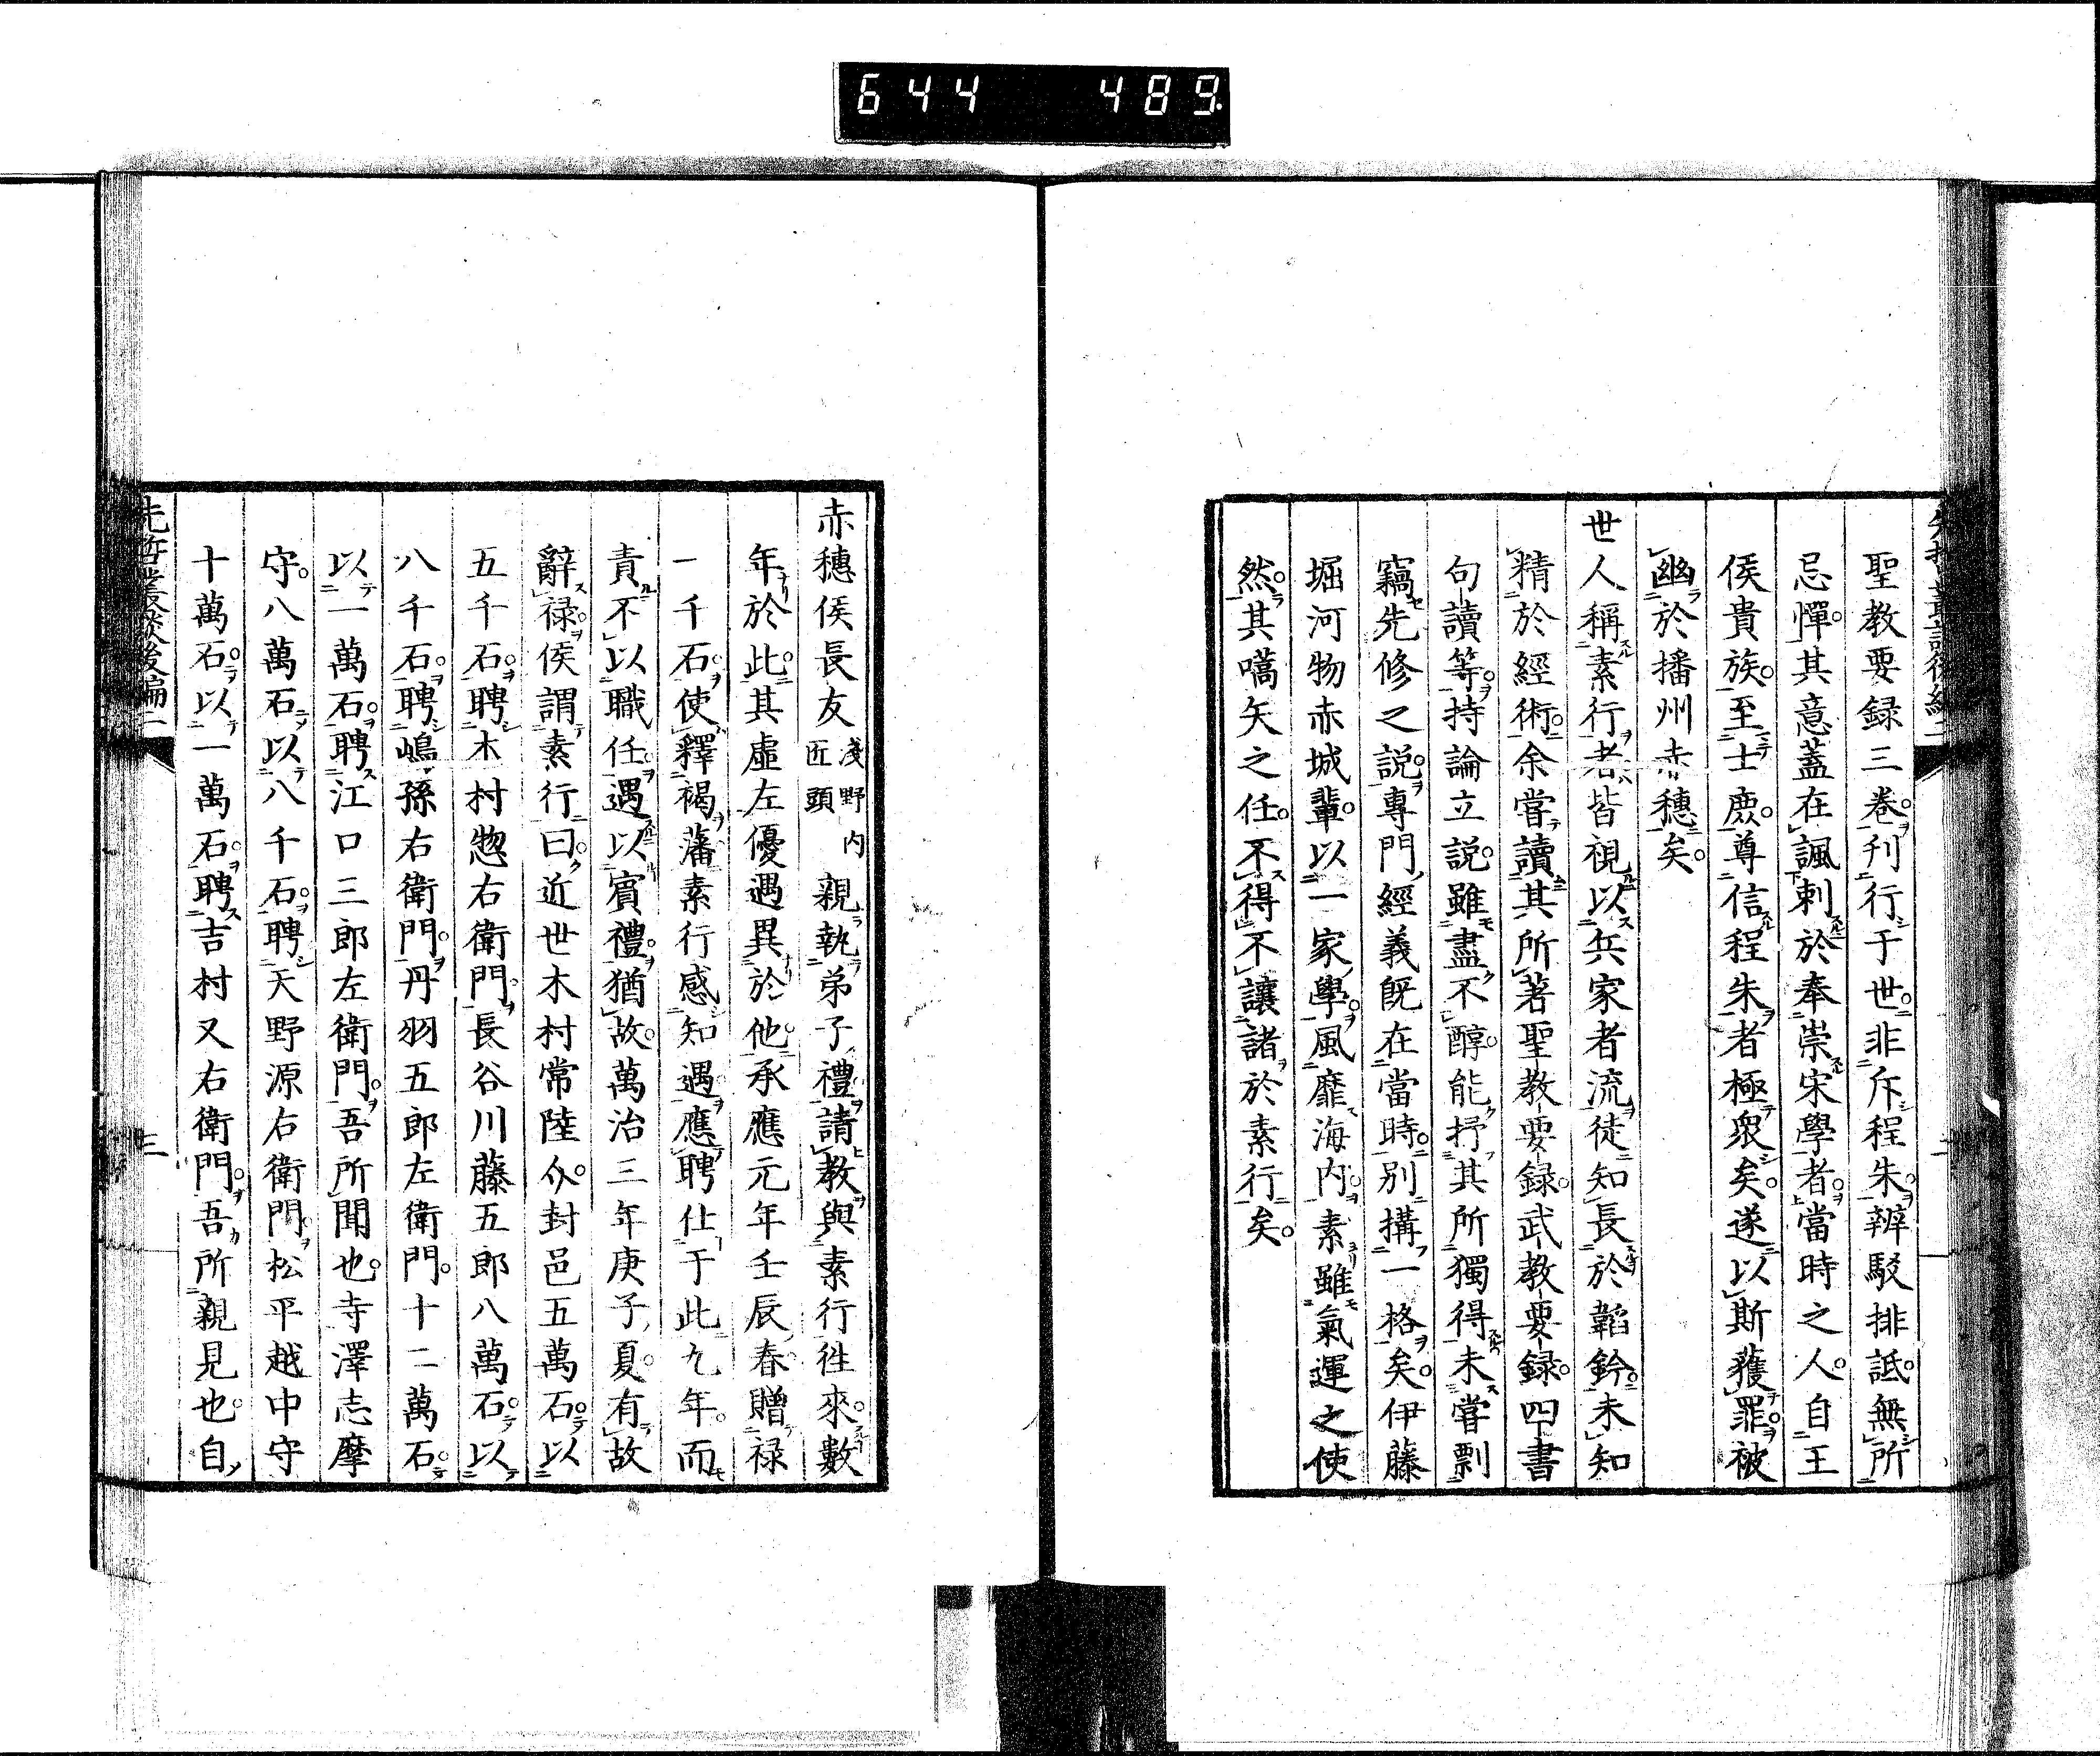 644 489
聖教要録三卷刊行于世非斥程朱辨駁排詆無所
忌憚其意蓋在諷刺於奉崇宋學者當時之人自王
侯貴族至士庶尊信程朱者極衆矣遂以斯獲罪被
幽於播州赤穗矣
世人稱素行者皆視以兵家者流徒知長於韜鈐未知
精於經術余嘗讀其所著聖教要録武教要録四書
句讀等持論立説雖盡不醇能抒其所獨得未嘗剽
竊先修之説專門經義既在當時別搆一格矣伊藤
堀河物赤城輩以一家學風靡海内素雖氣運之使
然其嚆矢之任不得不讓諸於素行矣
赤穗侯長友淺野内匠頭親執弟子禮請教與素行徃來數
年於此其虛左優遇異於他承應元年壬辰春贈禄
一千石使釋褐藩素行感知遇應聘仕于此九年而
責不以職任遇以賓禮猶故萬治三年庚子夏有故
辭禄侯謂素行曰近世木村常陸介封邑五萬石以
五千石聘木村惣右衛門長谷川藤五郎八萬石以
八千石聘嶋孫右衛門丹羽五郎左衛門十二萬石
以一萬石聘江口三郎左衛門吾所聞也寺澤志摩
守八萬石以八千石聘天野源右衛門松平越中守
十萬石以一萬石聘吉村又右衛門吾所親見也自
先哲叢談後編二
三